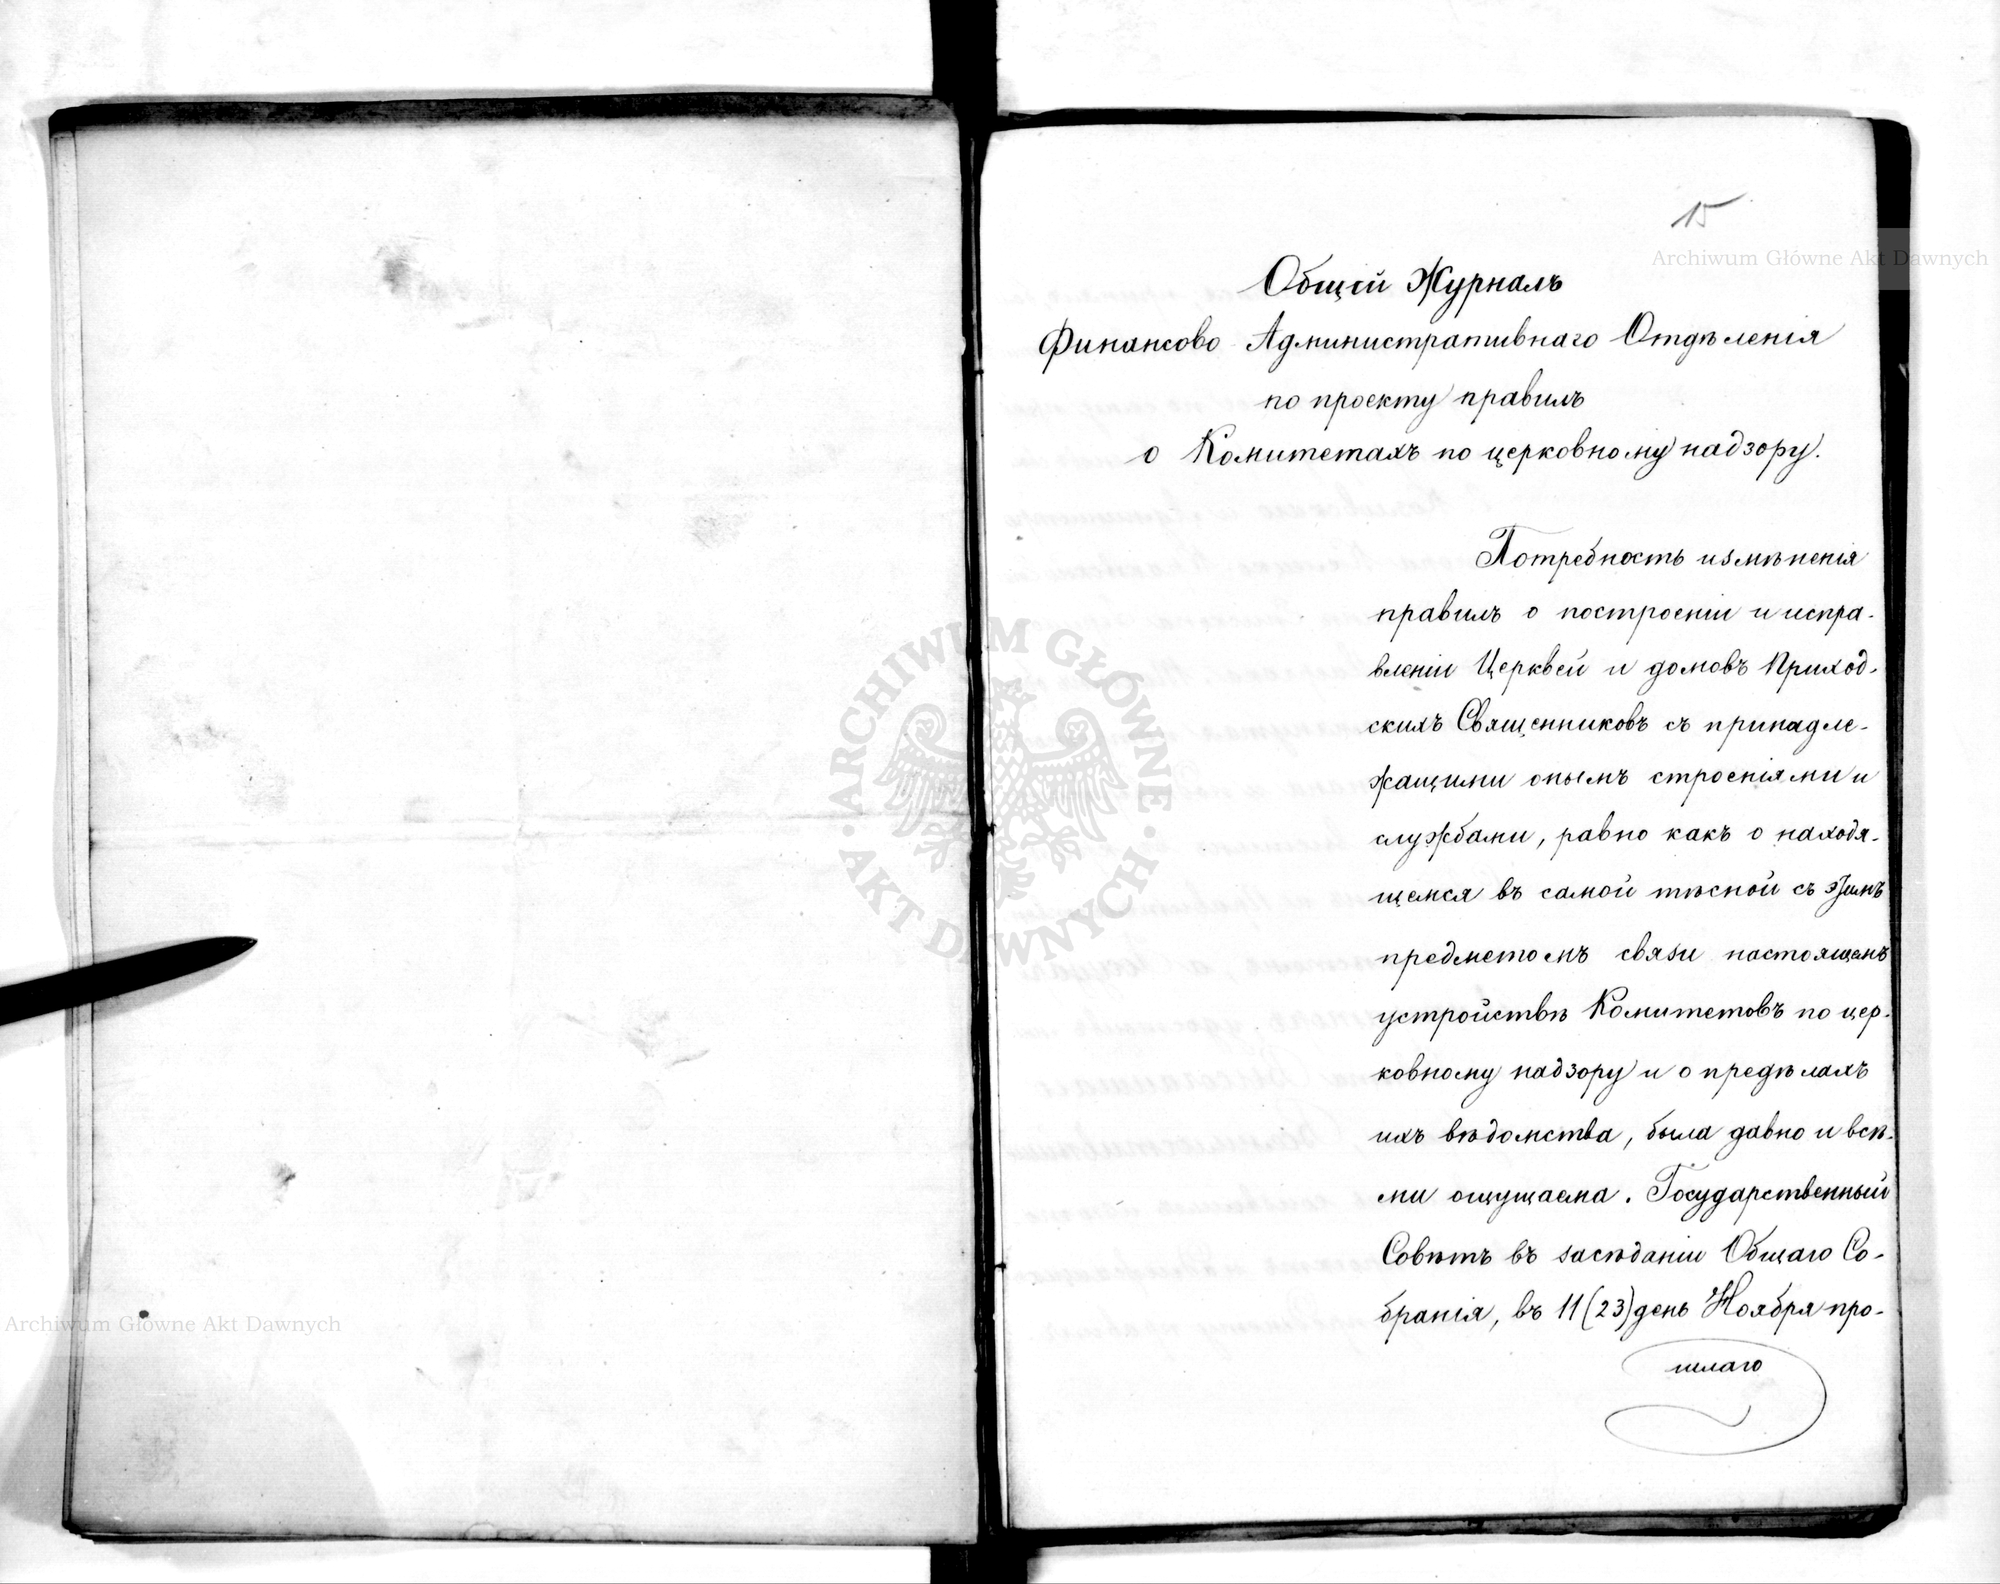 15
Archiwum Główne Akt Dawnych
Общій Журналъ
Финансово Административнаго Отдѣленія
по проекту правилъ
о Комитетахъ по церковному надзору.
Потребность измѣненія
правилъ о построеніи и испра-
вленіи Церквей и домовъ Приход-
скихъ Священниковъ съ принадле-
жащими онымъ строеніями и
службами, равно какъ о находя-
щемся въ самой тѣсной съ этимъ
предметомъ связи настоящемъ
устройствѣ Комитетовъ по цер-
ковному надзору и о предѣлахъ
ихъ вѣдомства, была давно и всѣ-
ми ощущаема. Государственный
Совѣтъ въ засѣданіи Общаго Со-
бранія, въ 11 (23) день Ноября про-
шлаго
ARCHIWUM GŁÓWNE
AKT DAWNYCH
Archiwum Główne Akt Dawnych